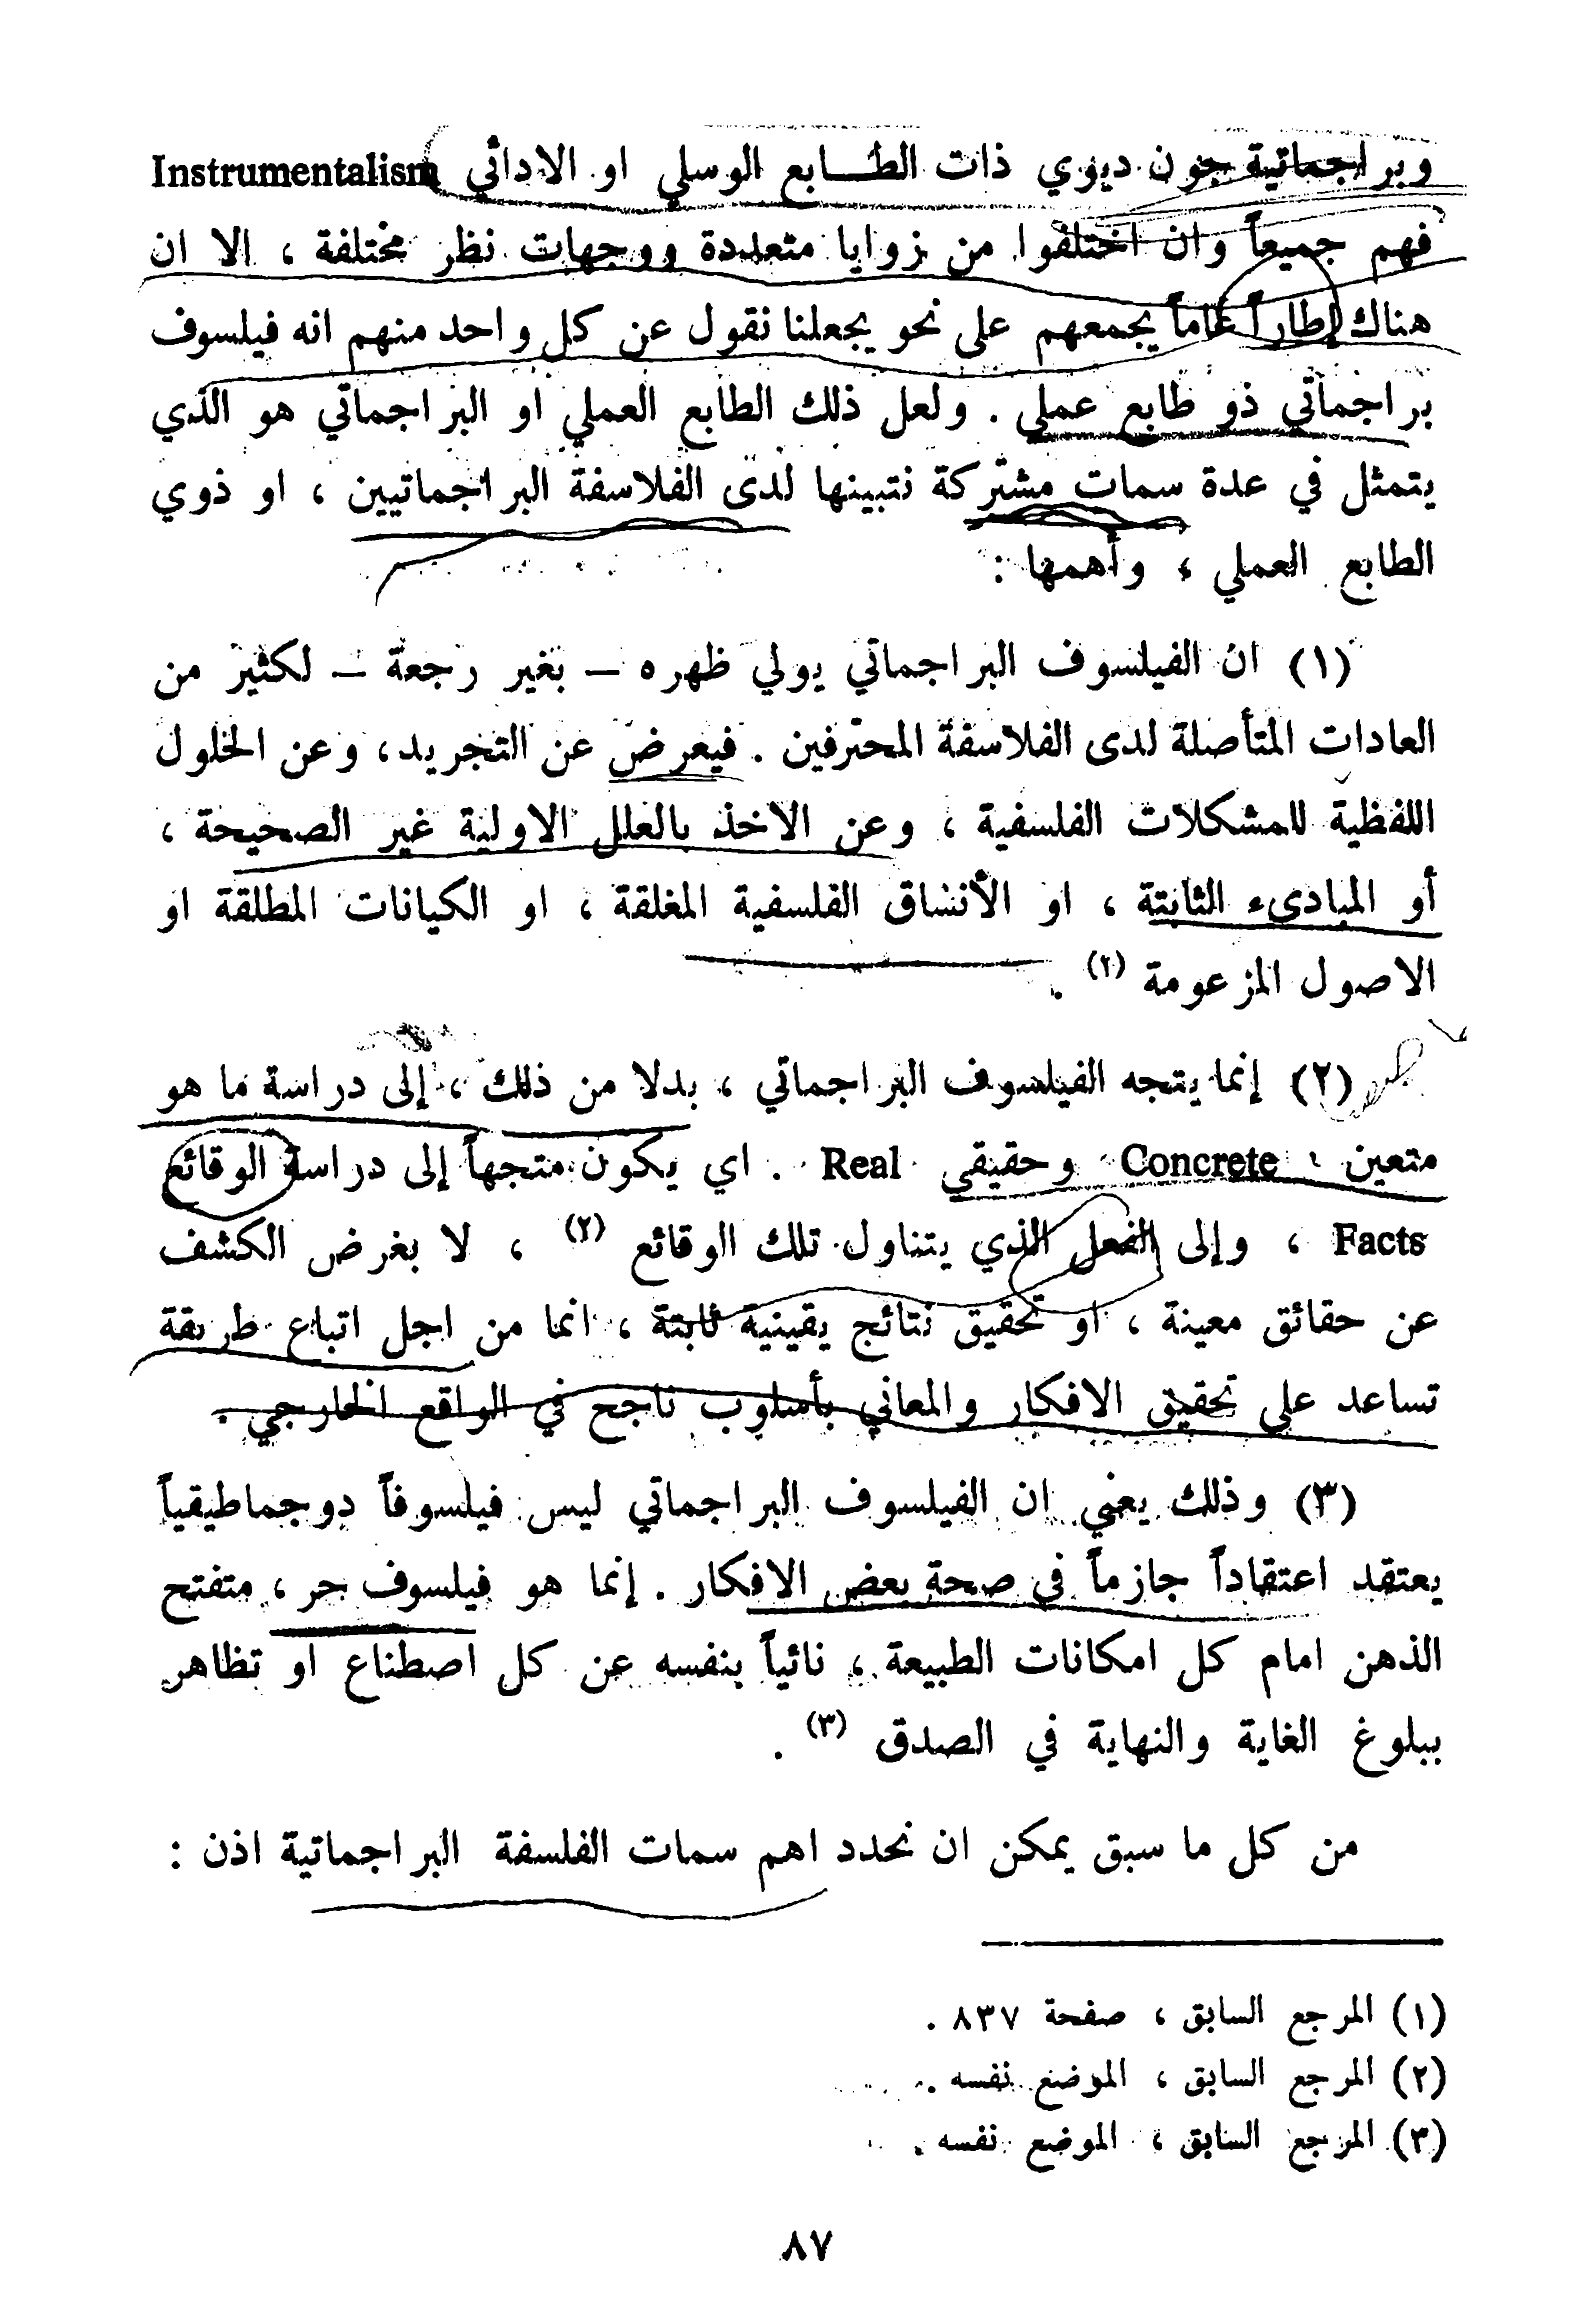 وبراجماتية جون ديوي ذات الطابع الوسلي او الاداتي Instrumentalism
فهم جميعاً وان اختلفوا من زوايا متعددة ووجهات نظر مختلفة ، الا ان
هناك إطاراً عاماً يجمعهم على نحو يجعلنا نقول عن كل واحد منهم انه فيلسوف
براجماتي ذو طابع عملي . ولعل ذلك الطابع العملي او البراجماتي هو الذي
يتمثل في عدة سمات مشتركة نتبينها لدى الفلاسفة البراجماتيين ، او ذوي
الطابع العملي ، وأهمها :
(١) ان الفيلسوف البراجماتي يولي ظهره – بغير رجعة – لكثير من
العادات المتأصلة لدى الفلاسفة المحترفين . فيعرض عن التجريد ، وعن الحلول
اللفظية للمشكلات الفلسفية ، وعن الاخذ بالعلل الاولية غير الصحيحة ،
أو المبادىء الثابتة ، او الأنساق الفلسفية المغلقة ، او الكيانات المطلقة او
الاصول المزعومة (٢) .
(٢) إنما يتجه الفيلسوف البراجماتي ، بدلا من ذلك ، إلى دراسة ما هو
متعين Concrete وحقيقي Real . اي يكون متجهاً إلى دراسة الوقائع
Facts ، وإلى الفعل الذي يتناول تلك الوقائع (٢) ، لا بغرض الكشف
عن حقائق معينة ، او تحقيق نتائج يقينية ثابتة ، انما من اجل اتباع طريقة
تساعد على تحقيق الافكار والمعاني بأسلوب ناجح في الواقع الخارجي .
(٣) وذلك يعني ان الفيلسوف البراجماتي ليس فيلسوفاً دوجماطيقياً
يعتقد اعتقاداً جازماً في صحة بعض الافكار . إنما هو فيلسوف حر ، متفتح
الذهن امام كل امكانات الطبيعة ، نائياً بنفسه عن كل اصطناع او تظاهر
ببلوغ الغاية والنهاية في الصدق (٣) .
من كل ما سبق يمكن ان نحدد اهم سمات الفلسفة البراجماتية اذن :
(١) المرجع السابق ، صفحة ٨٣٧ .
(٢) المرجع السابق ، الموضع نفسه .
(٣) المرجع السابق ، الموضع نفسه .
٨٧